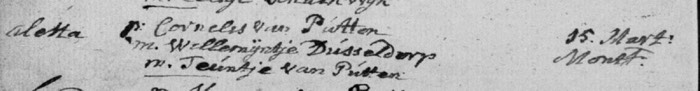 aletta p: Cornelis van Putten 15. Mart:
m. Willemijntje Dusseldorp Montf.
m. Teuntje van Putten